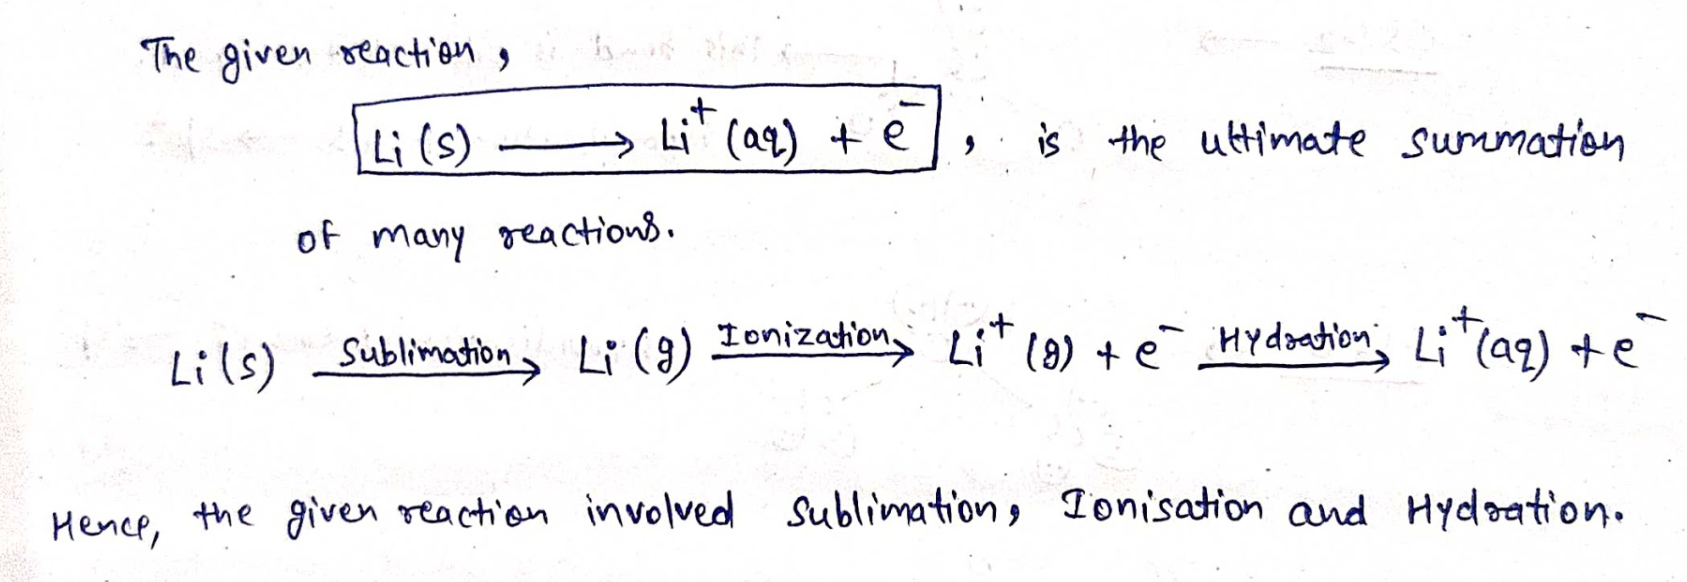 The given reaction,
Li(s) ⟶ Li⁺(aq) + e⁻, is the ultimate summation
of many reactions.
Li(s) Sublimation→ Li(g) Ionization→ Li⁺(g) + e⁻ Hydration→ Li⁺(aq) + e⁻
Hence, the given reaction involved Sublimation, Ionisation and Hydration.